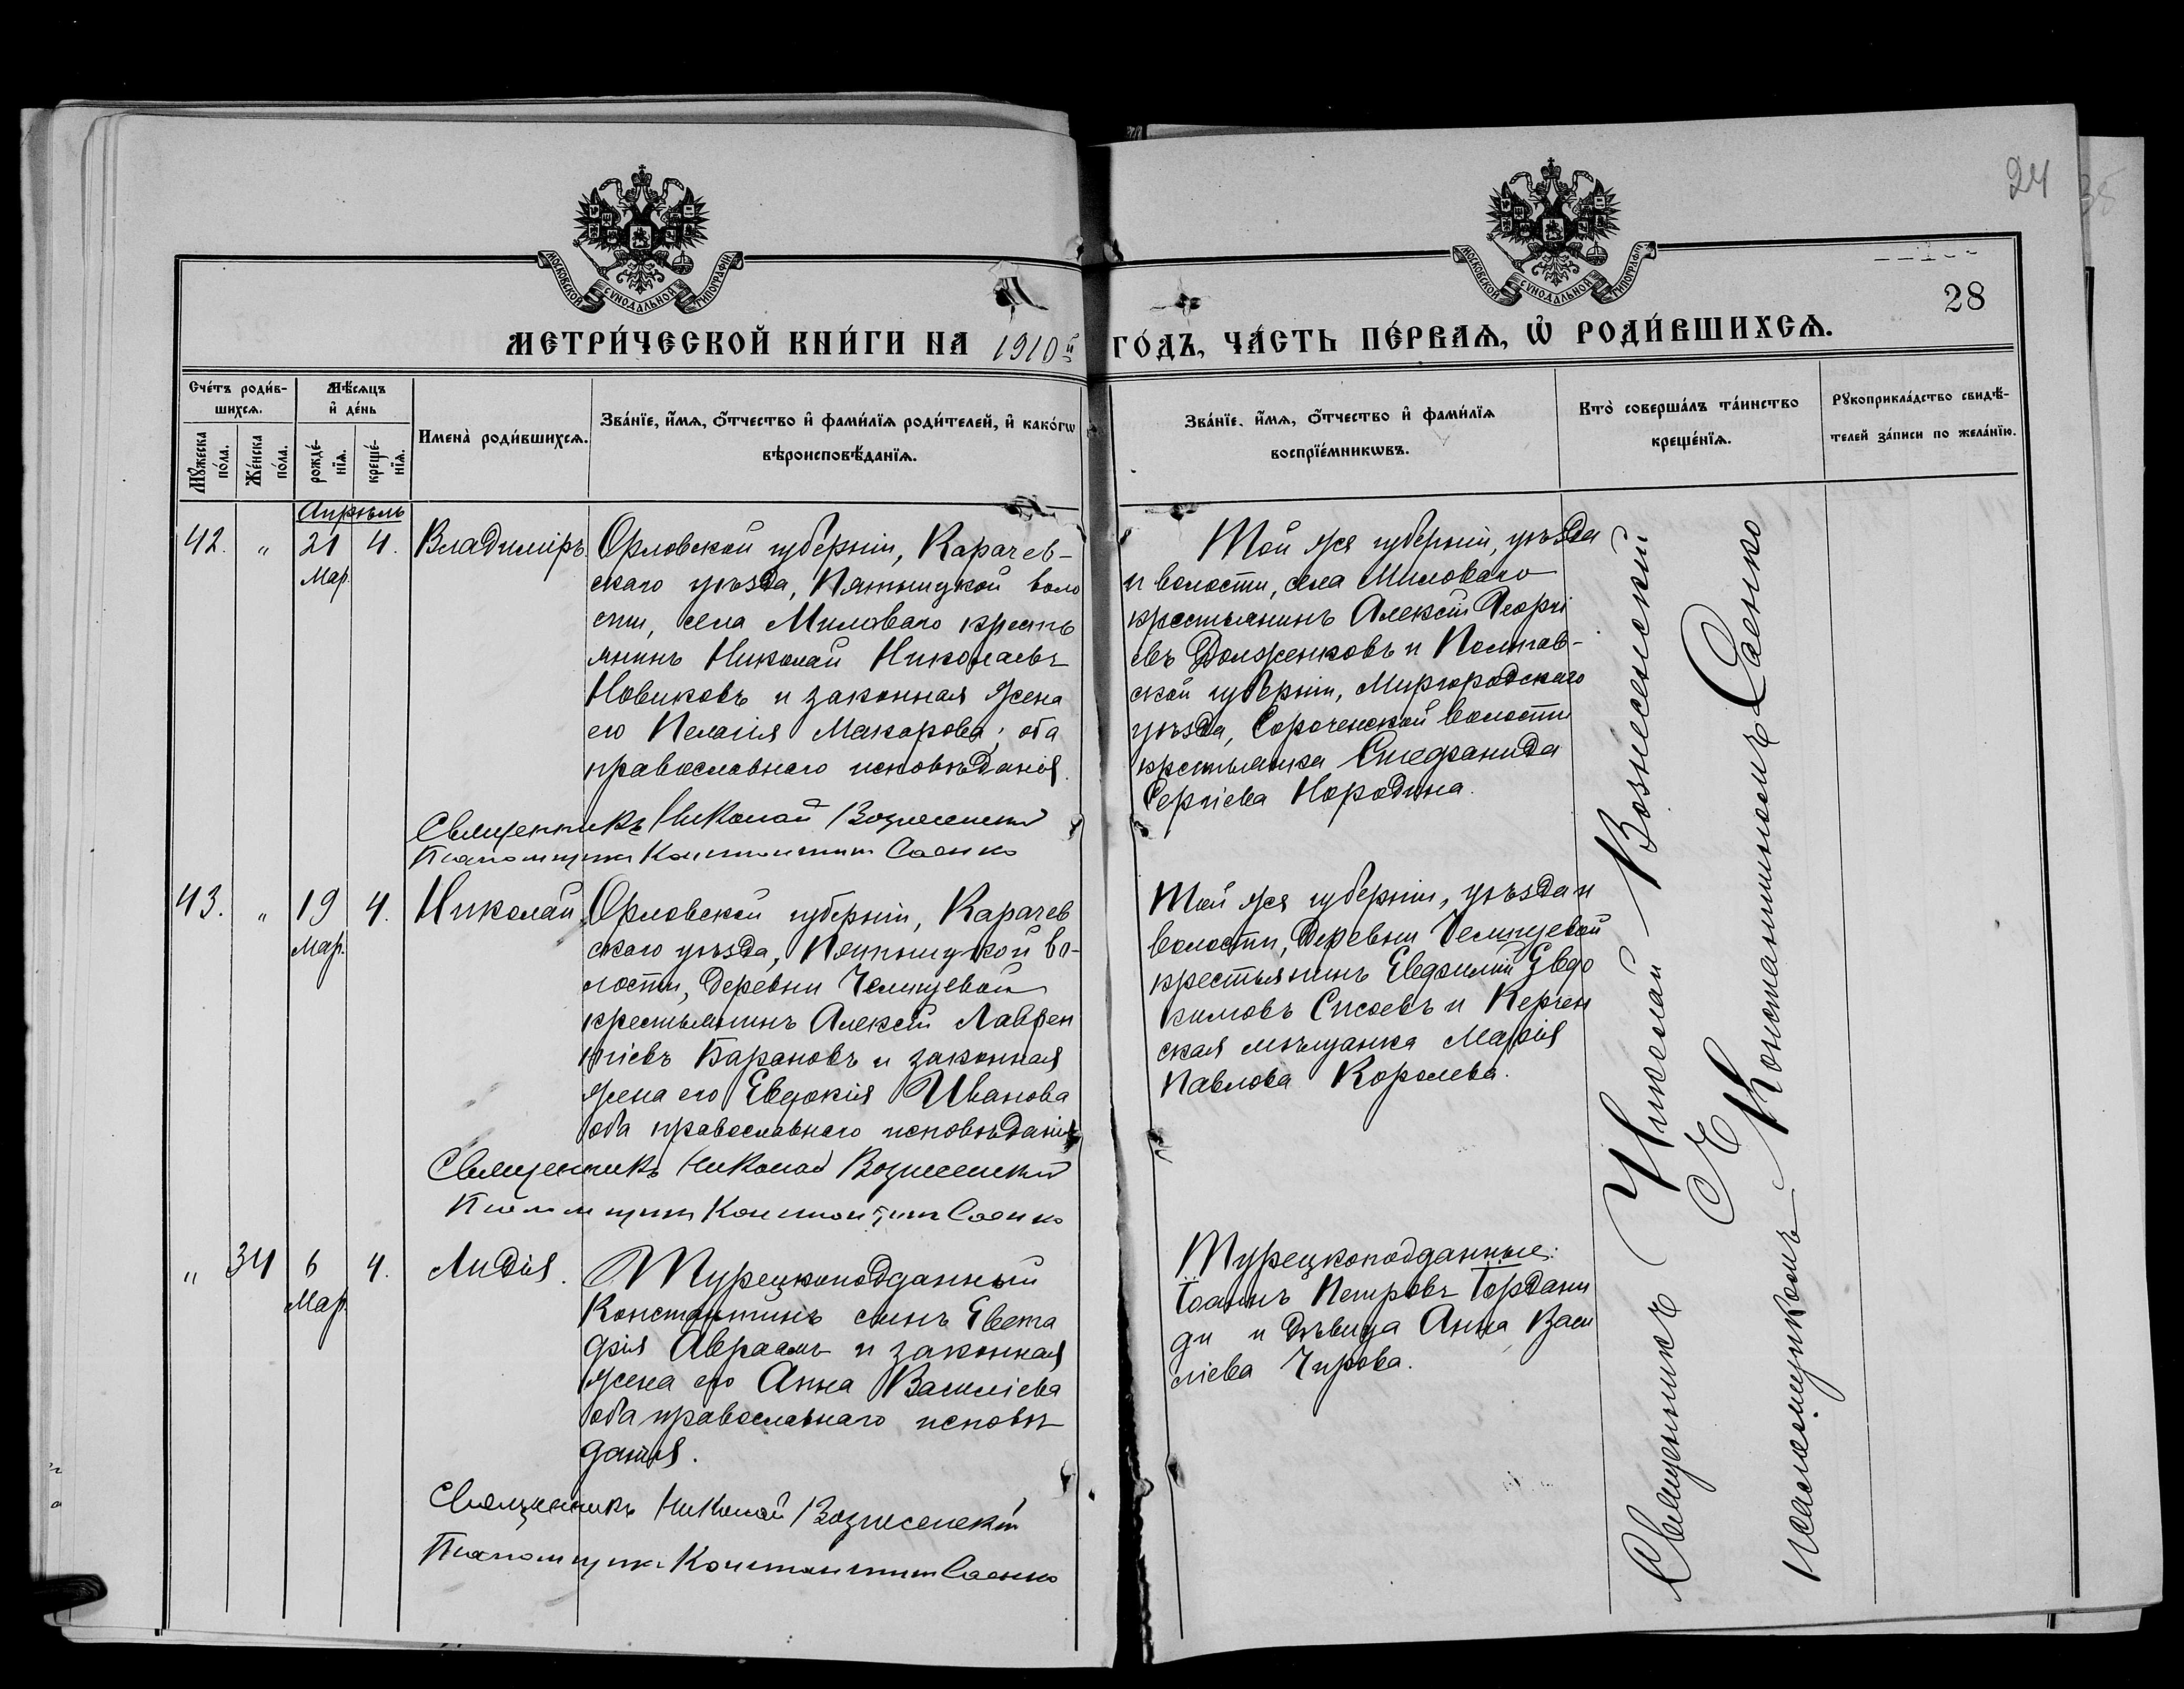 24
28
МОСКОВСКОЙ СѴНОДАЛЬНОЙ ТИПОГРАФІИ
МОСКОВСКОЙ СѴНОДАЛЬНОЙ ТИПОГРАФІИ
МЕТРИ́ЧЕСКОЙ КНИ́ГИ НА 1910й ГО́ДЪ, ЧА́СТЬ ПЕ́РВАѦ, Ѡ҆ РОДИ́ВШИХСѦ.
Сче́тъ роди́в-
шихсѧ.
Мꙋ́жеска по́ла.
Же́нска по́ла.
Мѣ́сѧцъ
и҆ де́нь
рожде́-
нїѧ.
креще́-
нїѧ.
Имена̀ роди́вшихсѧ.
Зва́нїе, и҆́мѧ, ѻ҆́тчество и҆ фами́лїѧ роди́телей, и҆ како́гѡ
вѣроисповѣ́данїѧ.
Зва́нїе, и҆́мѧ, ѻ҆́тчество и҆ фами́лїѧ
воспрїе́мникѡвъ.
Кто̀ соверша́лъ та́инство
креще́нїѧ.
Рꙋкоприкла́дство свидѣ́-
телей за́писи по жела́нїю.
Апрѣль
42. " 21 4. Владиміръ
Мар.
Орловской губерніи, Карачев-
скаго уѣзда, Пятницкой воло
сти, села Миловаго кресть
янинъ Николай Николаевъ
Новиковъ и законная жена
его Пелагія Макарова; оба
православнаго исповѣданія.
Священникъ Николай Вознесенскій
Псаломщикъ Константинъ Саенко
Той же губерніи, уѣзда
и волости, села Миловаго
крестьянинъ Алексій Георгі
евъ Долженковъ и Полтав-
ской губерніи, Миргородскаго
уѣзда, Сороченской волости
крестьянка Стефанида
Сергіева Породина.
43. " 19 4. Николай
Мар.
Орловской губерніи, Карачев
скаго уѣзда, Пятницкой во-
лости, деревни Челищевой
крестьянинъ Алексій Лаврен
тіевъ Барановъ и законная
жена его Евдокія Иванова
оба православнаго исповѣданія
Священникъ Николай Вознесенскій
Псаломщикъ Константинъ Саенко
Той же губерніи, уѣзда и
волости, деревни Челищевой
крестьянинъ Евфимій Евдо
кимовъ Сисоевъ и Керчен
ская мѣщанка Марія
Павлова Королева.
" 34 6 4. Лидія.
Мар.
Турецкоподданный
Константинъ сынъ Евста
фія Авраамъ и законная
жена его Анна Василіева
оба православнаго исповѣ
данія.
Священникъ Николай Вознесенскій
Псаломщикъ Константинъ Саенко
Турецкоподданные:
Іоаннъ Петровъ Іордани
ди и дѣвица Анна Васи
ліева Чирова.
Священникъ Николай Вознесенскій
съ
псаломщикомъ Константиномъ Саенко